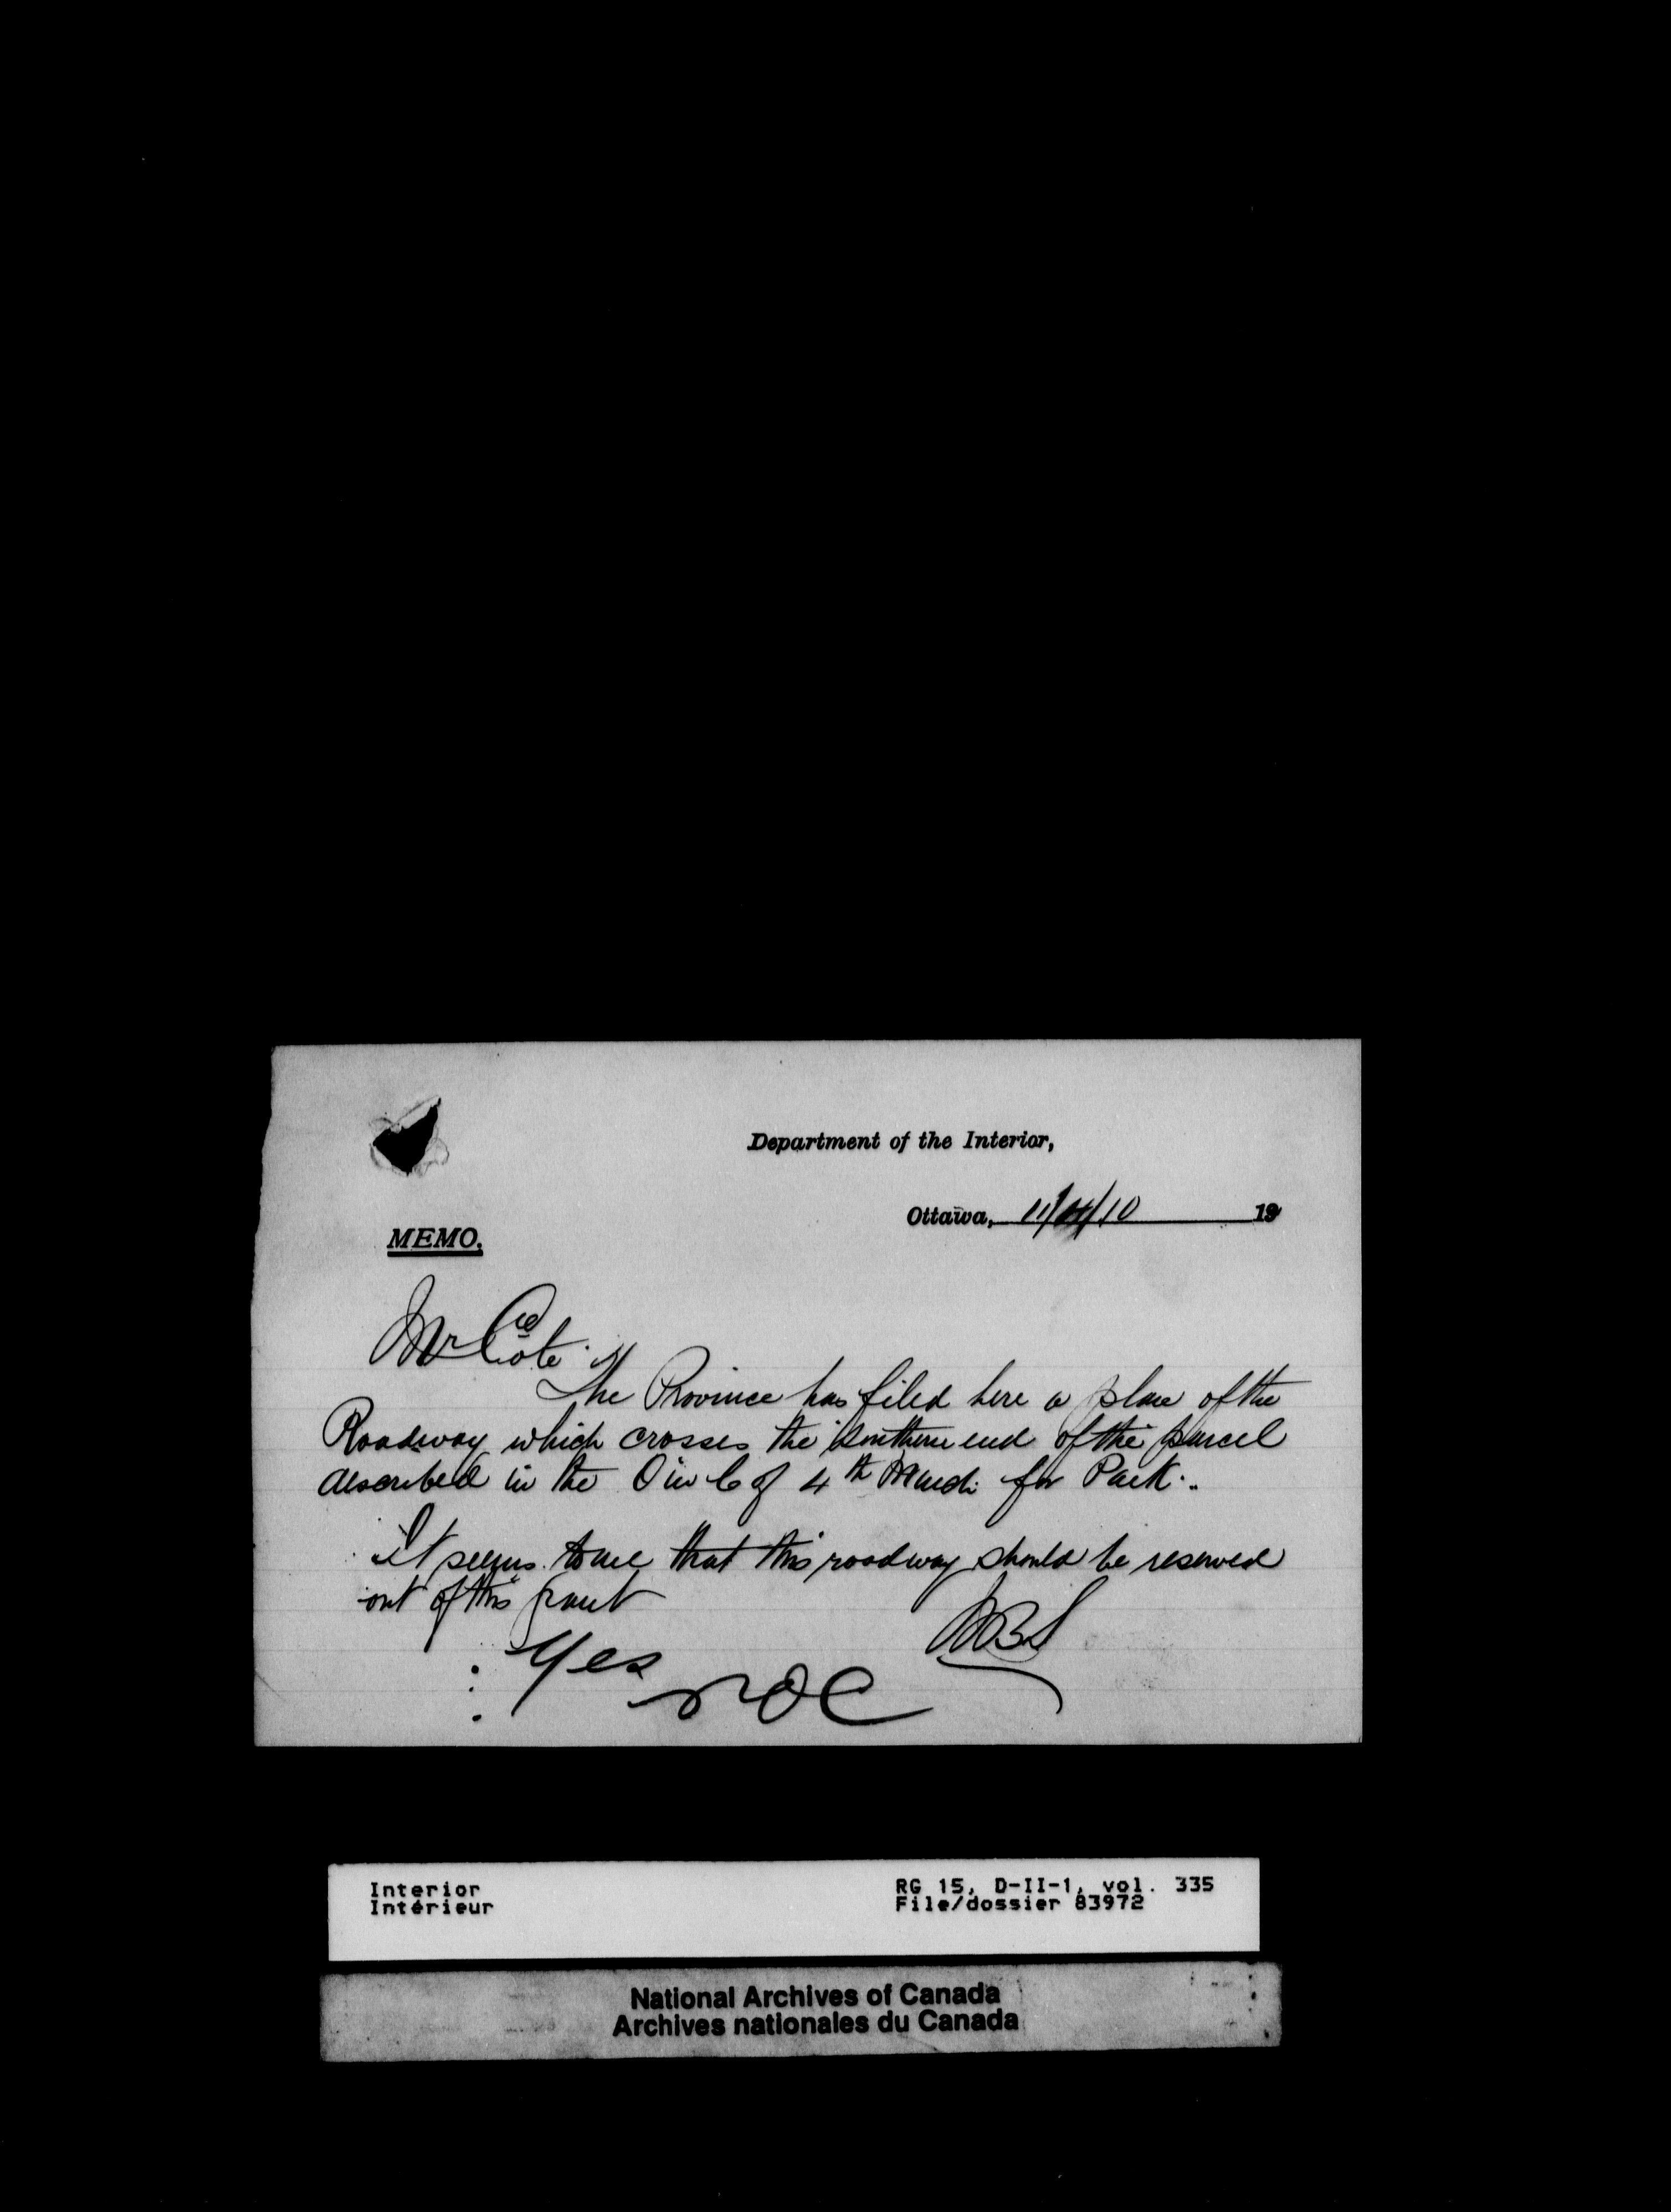 Department of the Interior,
Ottawa, 11/4/10 19
MEMO.
Mr Coté
The Province has filed here a plan of the
Roadway which crosses the southern end of the parcel
described in the O in C of 4th March for Park.
It seems to me that this roadway should be reserved
out of this grant
Yes
NOC
Interior
Intérieur
RG 15, D-II-1, vol. 335
File/dossier 83972
National Archives of Canada
Archives nationales du Canada